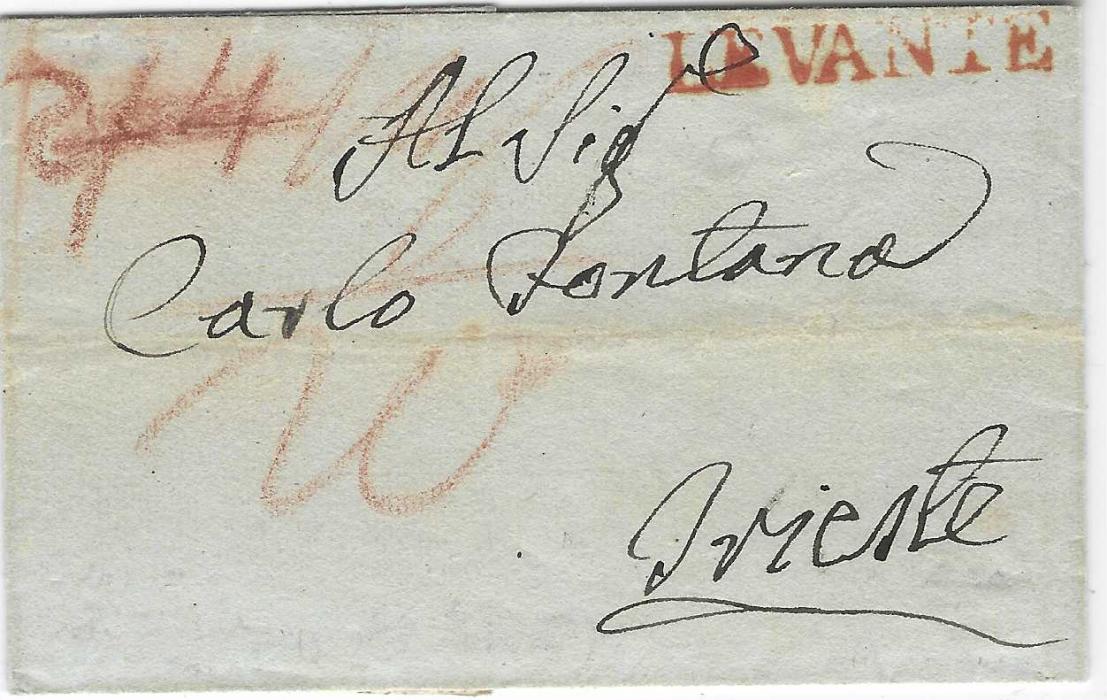 LEVANTE
Al Sig
Carlo Fontana
Trieste